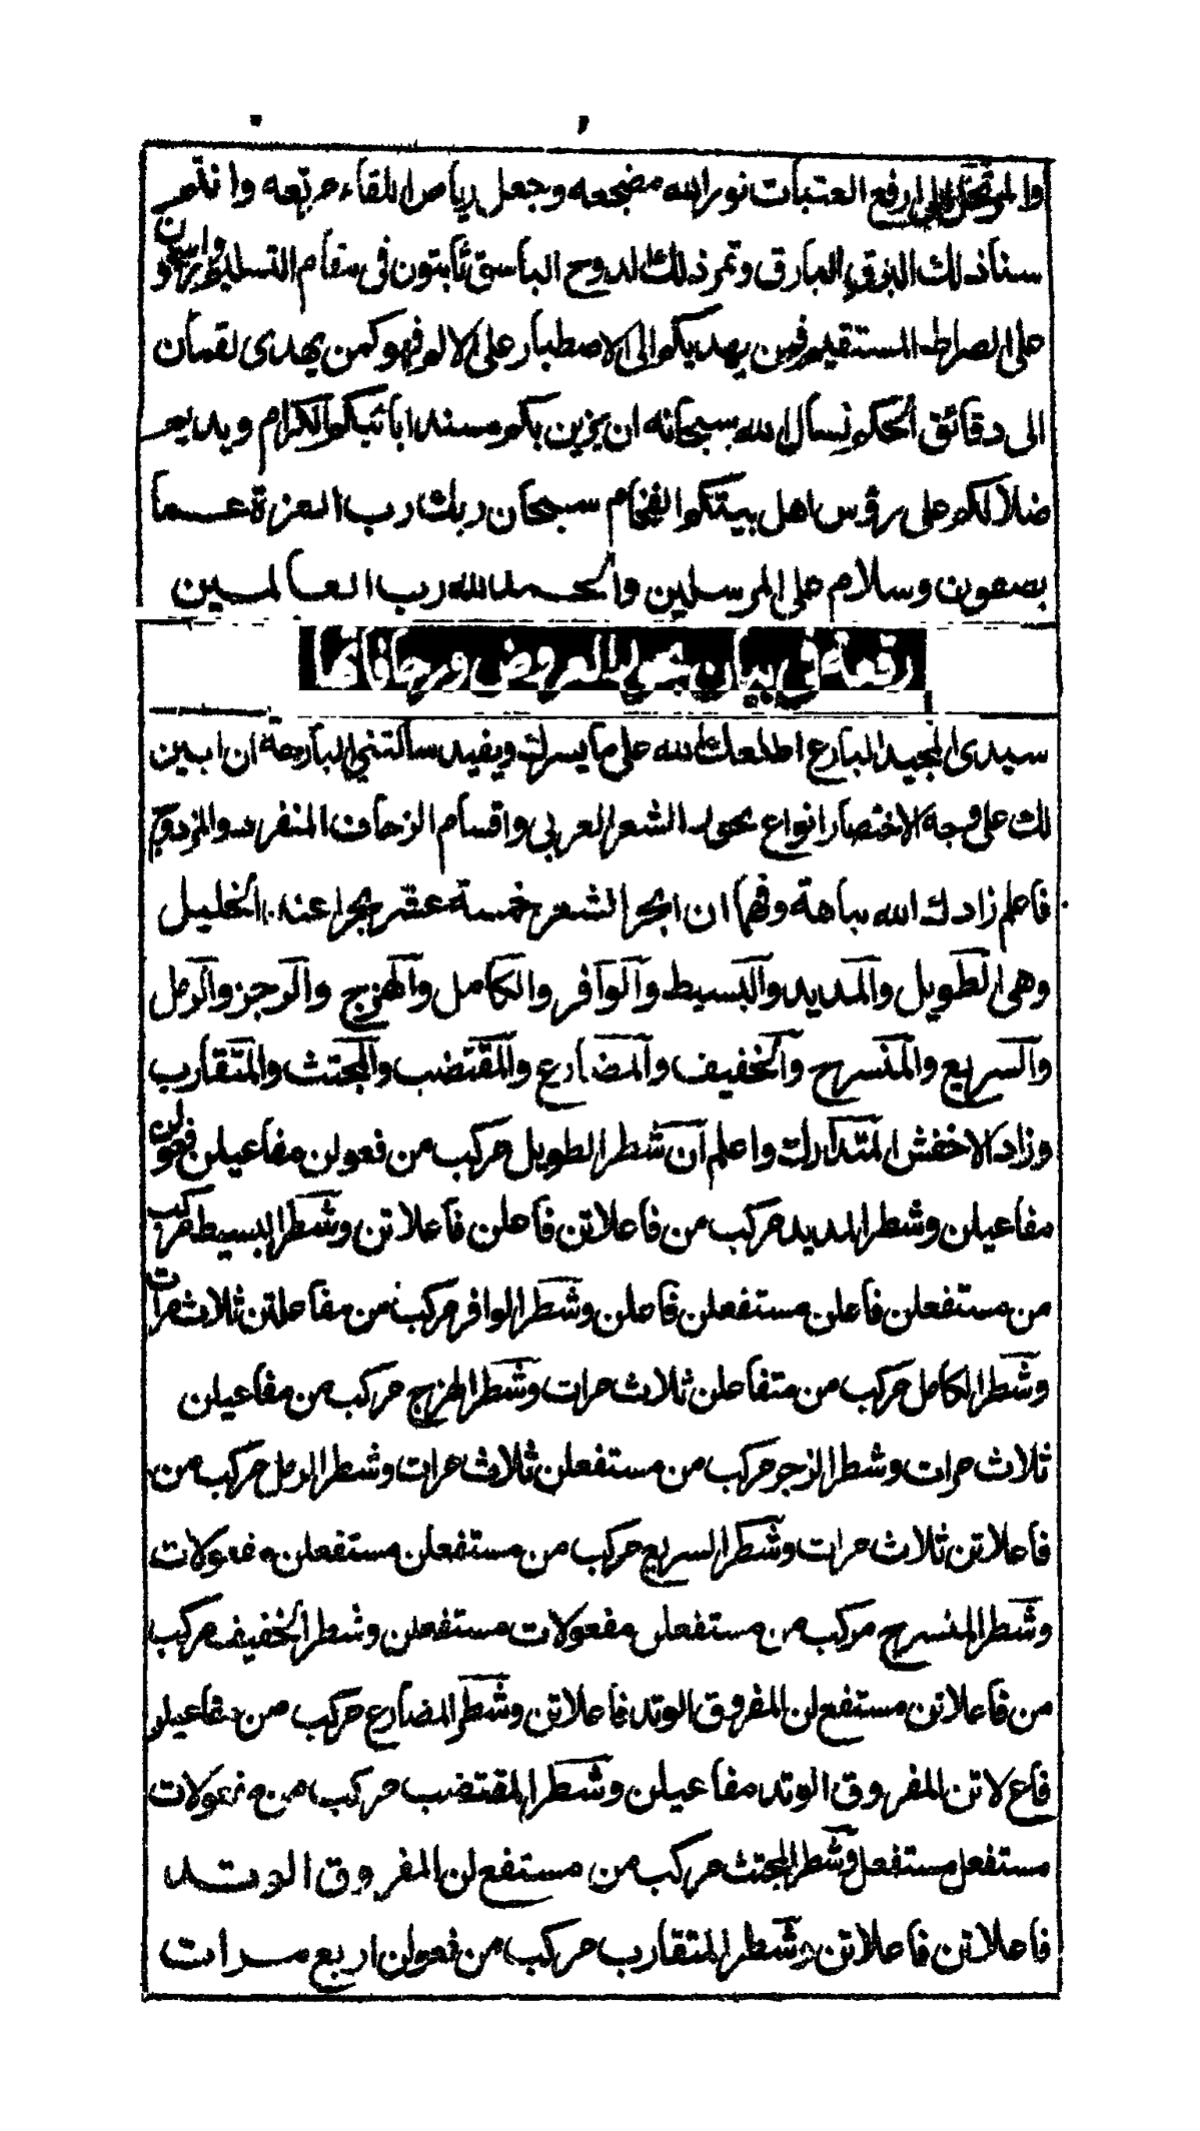 والمرتحل الى ارفع العتبات نور الله مضجعه وجعل رياض اللقاء مربعه وانتم
سنا ذلك البرق البارق وثمر ذلك الدوح الباسق ثابتون في مقام التسليط وراسخون
على الصراط المستقيم فمن يهديكم الى الاصطبار على الالم فهو كمن يهدى لقمان
الى دقائق الحكم نسأل الله سبحانه ان يزين بكم مسند ابائكم الكرام ويديم
ضلالكم على رؤس اهل بيتكم الفخام سبحان ربك رب العزة عما
يصفون وسلام على المرسلين والحمد لله رب العالمين
رقعة في بيان بحور العروض وزحافاتها
سيدى المجيد البارع اطلعك الله على ما يسرك ويفيد سالتني البارحة ان ابين
لك على وجه الاختصار انواع بحور الشعر العربي واقسام الزحاف المنفرد والمزدوج
فاعلم زادك الله نباهة وفهما ان ابحر الشعر خمسة عشر بحرا عند الخليل
وهى الطويل والمديد والبسيط والوافر والكامل والهزج والرجز والرمل
والسريع والمنسرح والخفيف والمضارع والمقتضب والمجتث والمتقارب
وزاد الاخفش المتدارك واعلم ان شطر الطويل مركب من فعولن مفاعيلن فعولن
مفاعيلن وشطر المديد مركب من فاعلاتن فاعلن فاعلاتن وشطر البسيط مركب
من مستفعلن فاعلن مستفعلن فاعلن وشطر الوافر مركب من مفاعلتن ثلاث مرات
وشطر الكامل مركب من متفاعلن ثلاث مرات وشطر الهزج مركب من مفاعيلن
ثلاث مرات وشطر الرجز مركب من مستفعلن ثلاث مرات وشطر الرمل مركب من
فاعلاتن ثلاث مرات وشطر السريع مركب من مستفعلن مستفعلن مفعولات
وشطر المنسرح مركب من مستفعلن مفعولات مستفعلن وشطر الخفيف مركب
من فاعلاتن مستفع لن المفروق الوتد فاعلاتن وشطر المضارع مركب من مفاعيلن
فاع لاتن المفروق الوتد مفاعيلن وشطر المقتضب مركب من مفعولات
مستفعل مستفعل وشطر المجتث مركب من مستفع لن المفروق الوتد
فاعلاتن فاعلاتن وشطر المتقارب مركب من فعولن اربع مرات